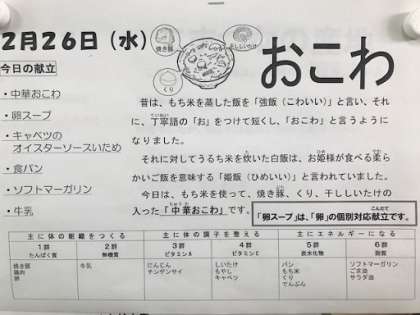 2月26日（水）
焼き豚
干ししいたけ
くり
おこわ
今日の献立
・中華おこわ
・卵スープ
・キャベツの
オイスターソースいため
・食パン
・ソフトマーガリン
・牛乳
昔は、もち米を蒸した飯を「強飯（こわいい）」と言い、それ
に、丁寧語の「お」をつけて短くし、「おこわ」と言うように
なりました。
それに対してうるち米を炊いた白飯は、お姫様が食べる柔ら
かいご飯を意味する「姫飯（ひめいい）」と言われていました。
今日は、もち米を使って、焼き豚、くり、干ししいたけの
入った「中華おこわ」です。
「卵スープ」は、「卵」の個別対応献立です。
主に体の組織をつくる 主に体の調子を整える 主にエネルギーになる
1群 2群 3群 4群 5群 6群
たんぱく質 無機質 ビタミンA ビタミンC 炭水化物 脂質
焼き豚 牛乳 にんじん しいたけ パン ソフトマーガリン
鶏肉 チンゲンサイ もやし もち米 ごま油
卵 キャベツ くり サラダ油
でんぷん